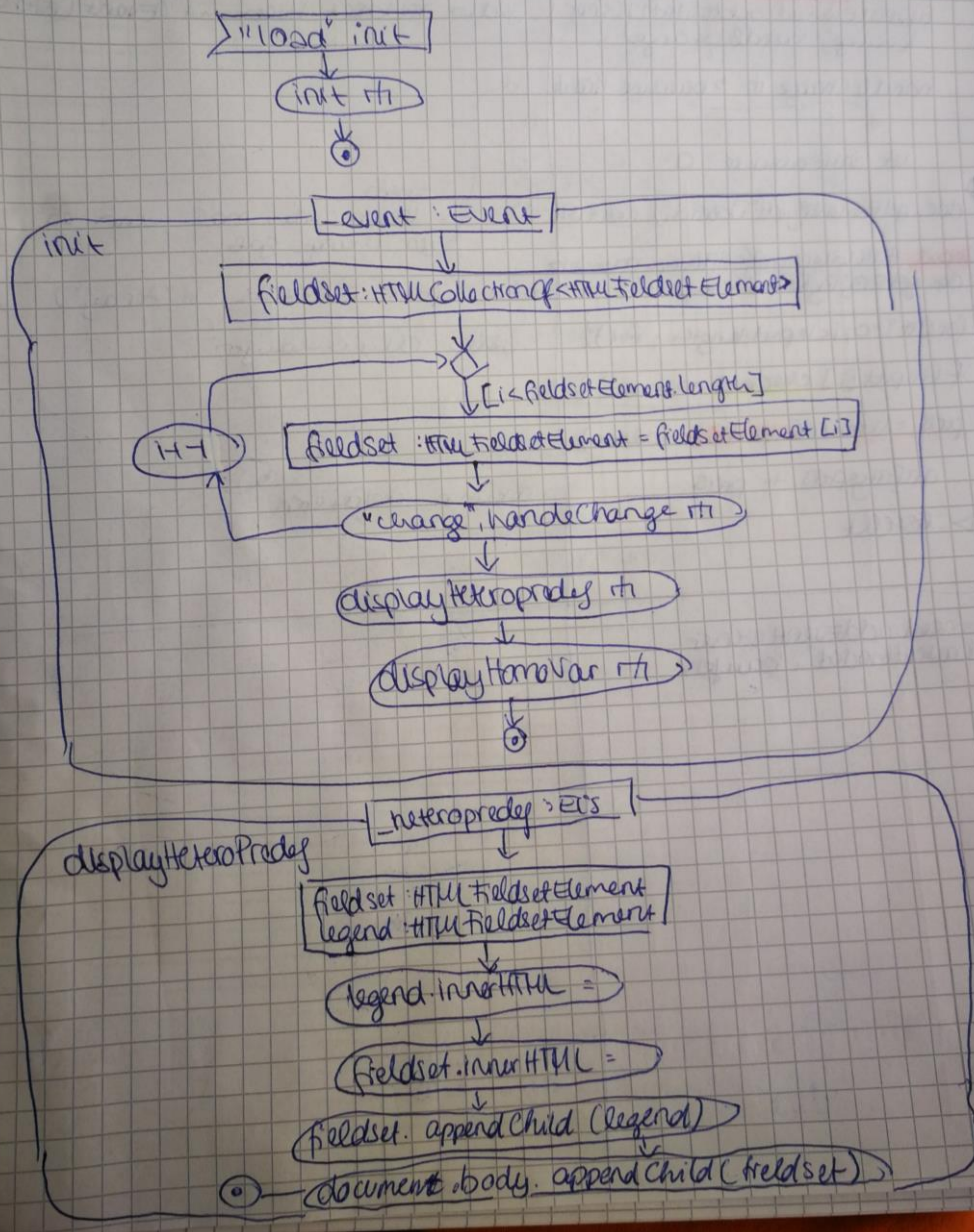 "load" init
init
_event : Event
init
fieldset : HTMLCollectionOf<HTMLFieldsetElement>
[i<fieldsetElement.length]
fieldset : HTMLFieldsetElement = fieldsetElement [i]
"change", handeChange
displayHeteropredef
displayHomoVar
_heteropredef :
displayHeteroPredef
fieldset : HTMLFieldsetElement
legend : HTMLFieldsetElement
legend.innerHTML =
fieldset.innerHTML =
fieldset. appendChild (legend)
document.body. appendChild (fieldset)